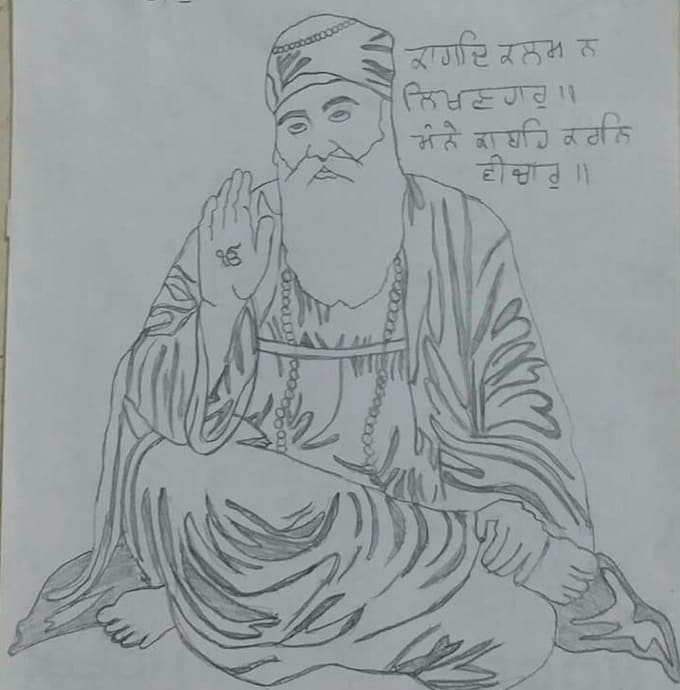 ਕਾਗਦਿ ਕਲਮ ਨ
ਲਿਖਣਹਾਰੁ ॥
ਮੰਨੇ ਕਾ ਬਹਿ ਕਰਨਿ
ਵੀਚਾਰੁ ॥
ੴ